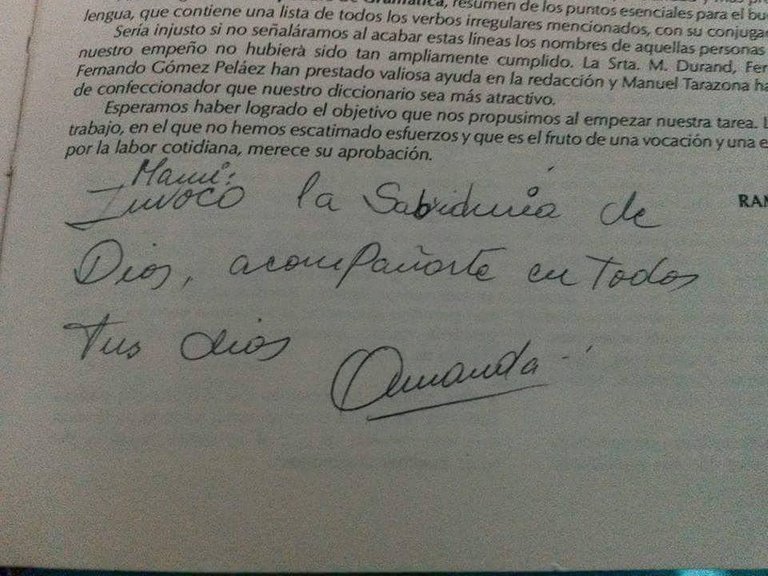 Gramática, resumen de los puntos esenciales para el bu
lengua, que contiene una lista de todos los verbos irregulares mencionados, con su conjugac
Sería injusto si no señaláramos al acabar estas líneas los nombres de aquellas personas
nuestro empeño no hubiera sido tan ampliamente cumplido. La Srta. M. Durand, Fer
Fernando Gómez Peláez han prestado valiosa ayuda en la redacción y Manuel Tarazona ha
de confeccionador que nuestro diccionario sea más atractivo.
Esperamos haber logrado el objetivo que nos propusimos al empezar nuestra tarea. L
trabajo, en el que no hemos escatimado esfuerzos y que es el fruto de una vocación y una e
por la labor cotidiana, merece su aprobación.
RAM
Mami:
Invoco la Sabiduria de
Dios, acompañarte en Todos
Tus dias
Amanda